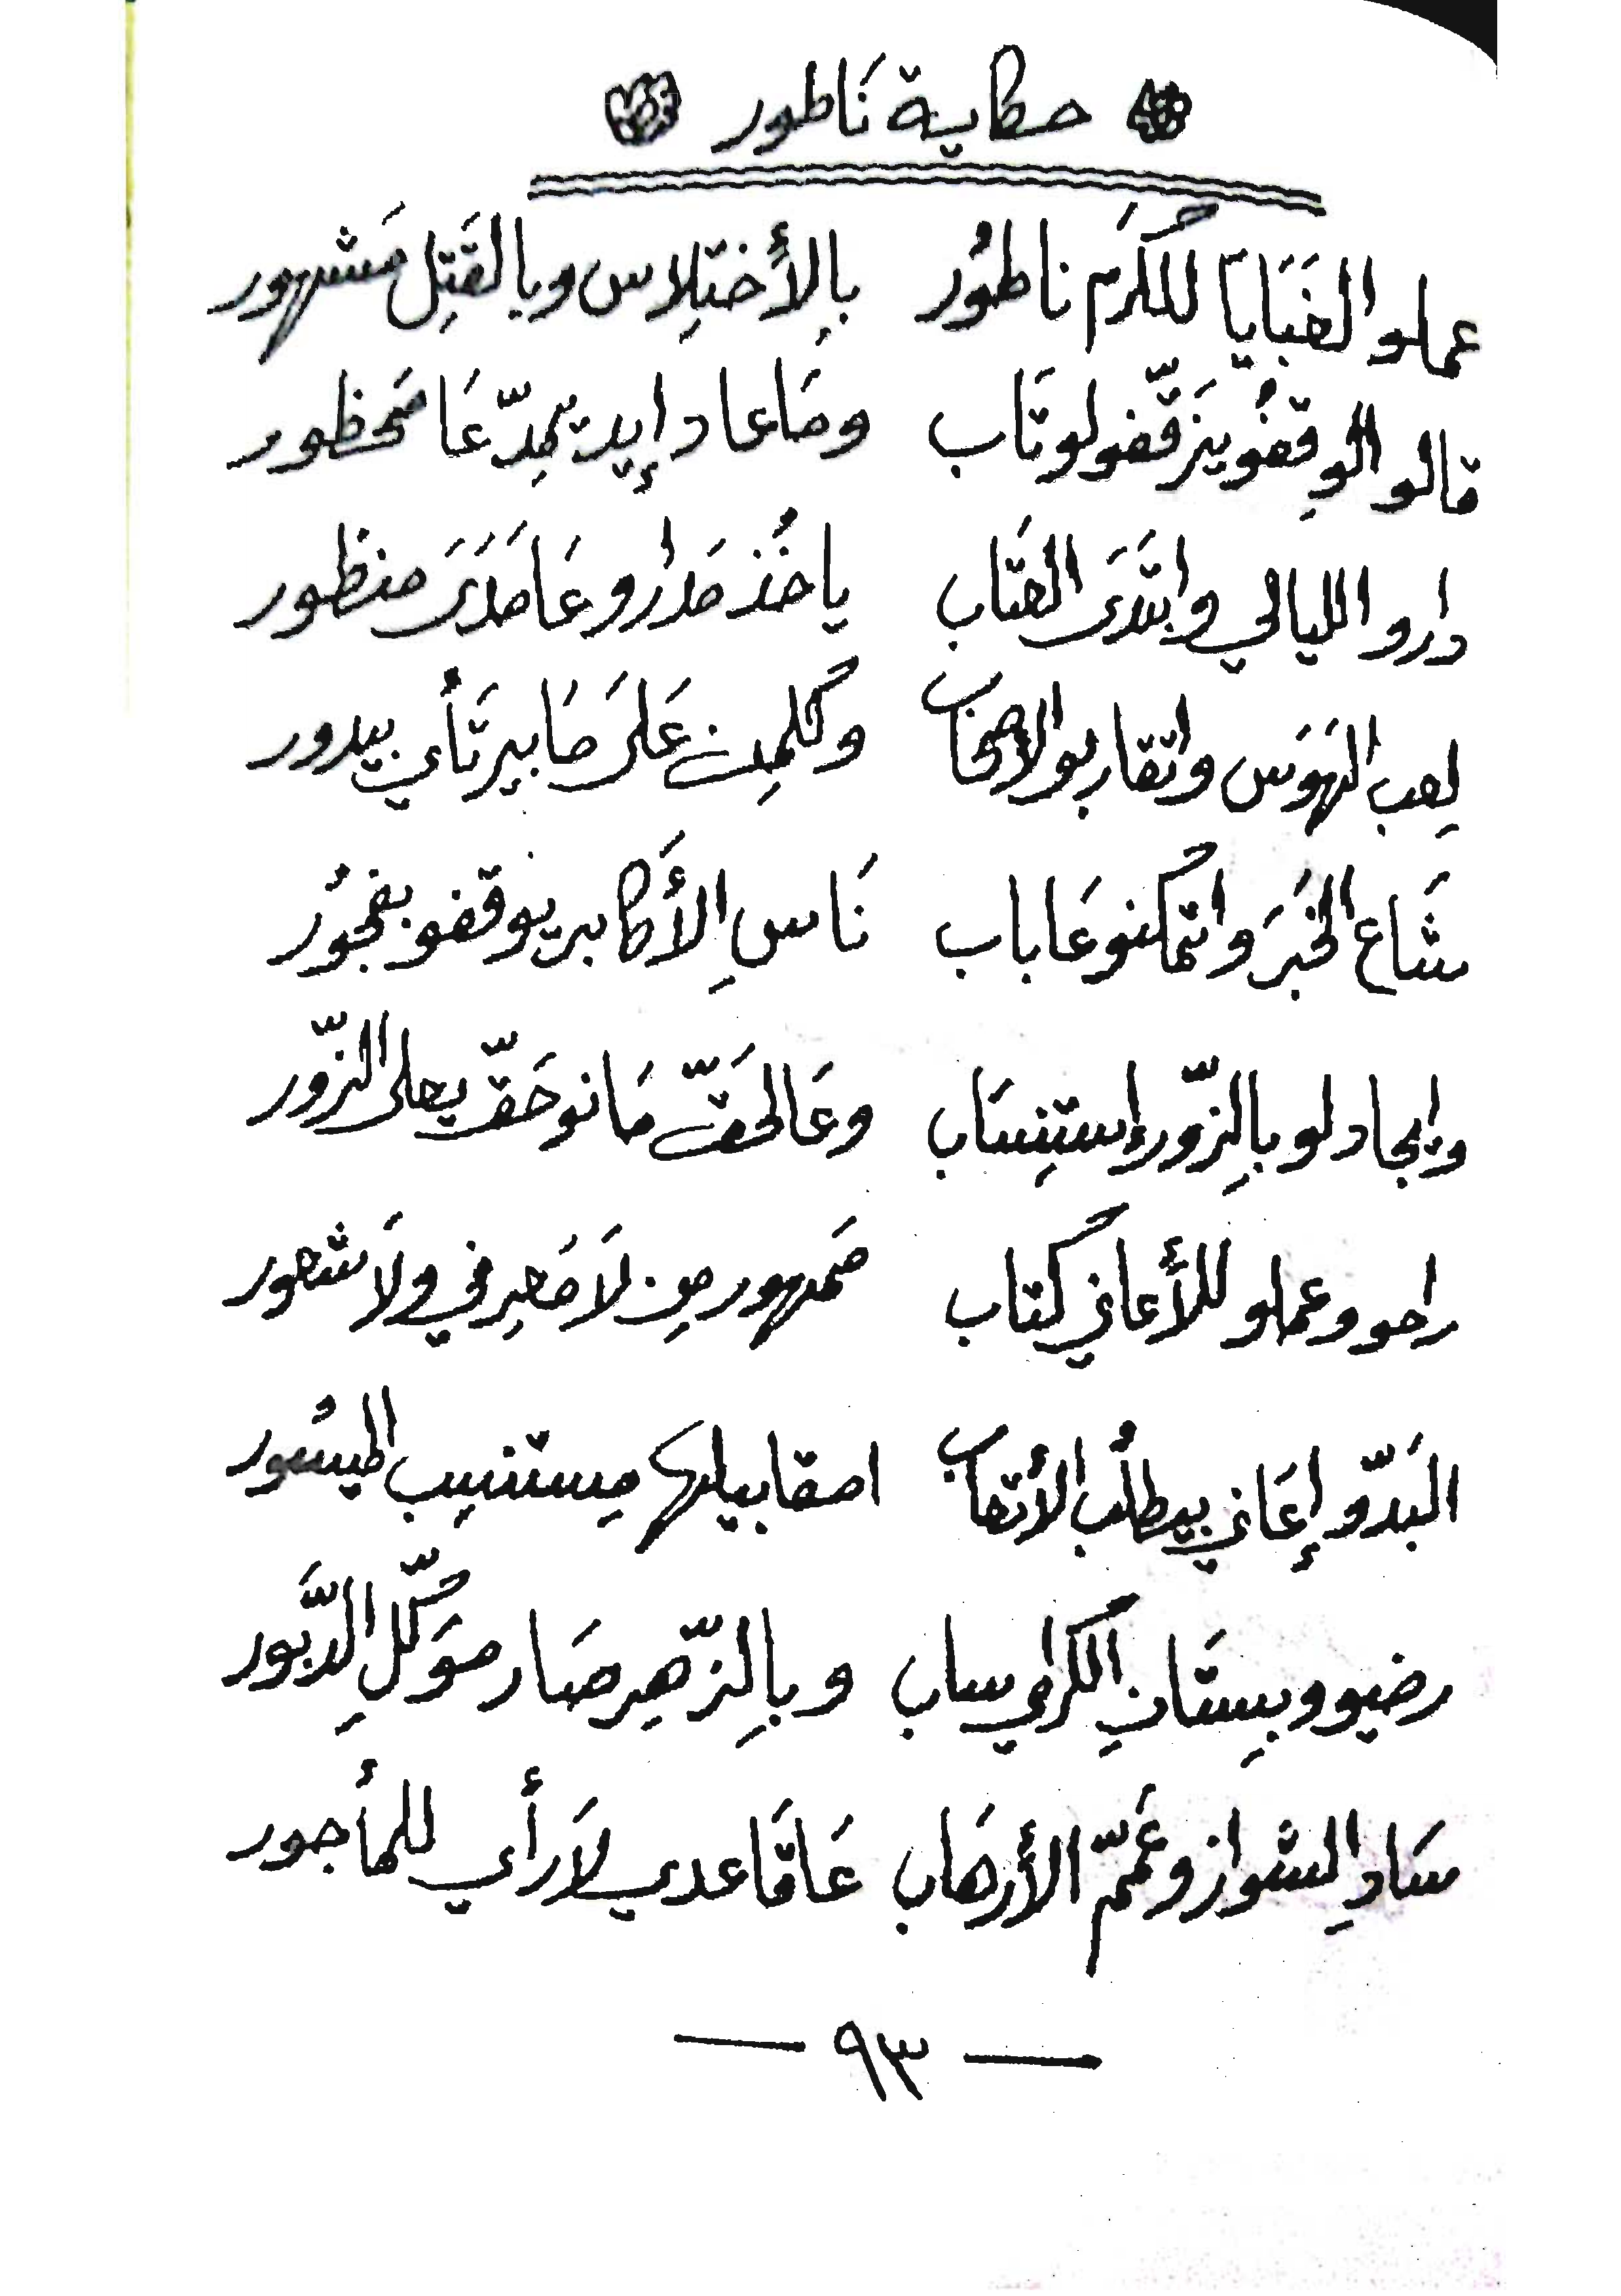 حكاية نَاطور
عملو الغَبَايَا للكَرَم ناطوُر بِالأَختِلاس وبالقَتِل مَشهور
قالو الوِقفُو يِزَقّفولو تَاب ومَا عاد إيد تمِدّ عَا مَحظور
دارو الليالي وابتَدَى العتَاب ياخُذ مَدارو عَا مَدَى منظور
لِعب الهَوَس واتقاربو الاصحَاب وكلمِن عَلَى مَا بيرتَأي بيدور
شَاع الخَبَر واتمكنو عَا باب نَاسِ الأَكَابر يوقفو بفجُور
وإيجادلو بالِزّور إستِنسَاب وعَالحَقّ مَانو حَقّ يعلى الزّور
راحو وعملو للأَغاني كتاب ممهور مِن لاَ مَعرِفي ولاَ شعور
البَدّو إغَاني بيطلُب الأتعاب اصقا بيلها مِستنيب الميسُور
رضيو وبِستَانِ الكرامي ساب وبِالِزّهِر صَار موَكّلِ الدّبور
سَادِ الشواز وعَمّ الأرهَاب عَا قَاعدي لاَ رَأي للمأجور
— ٩٣ —